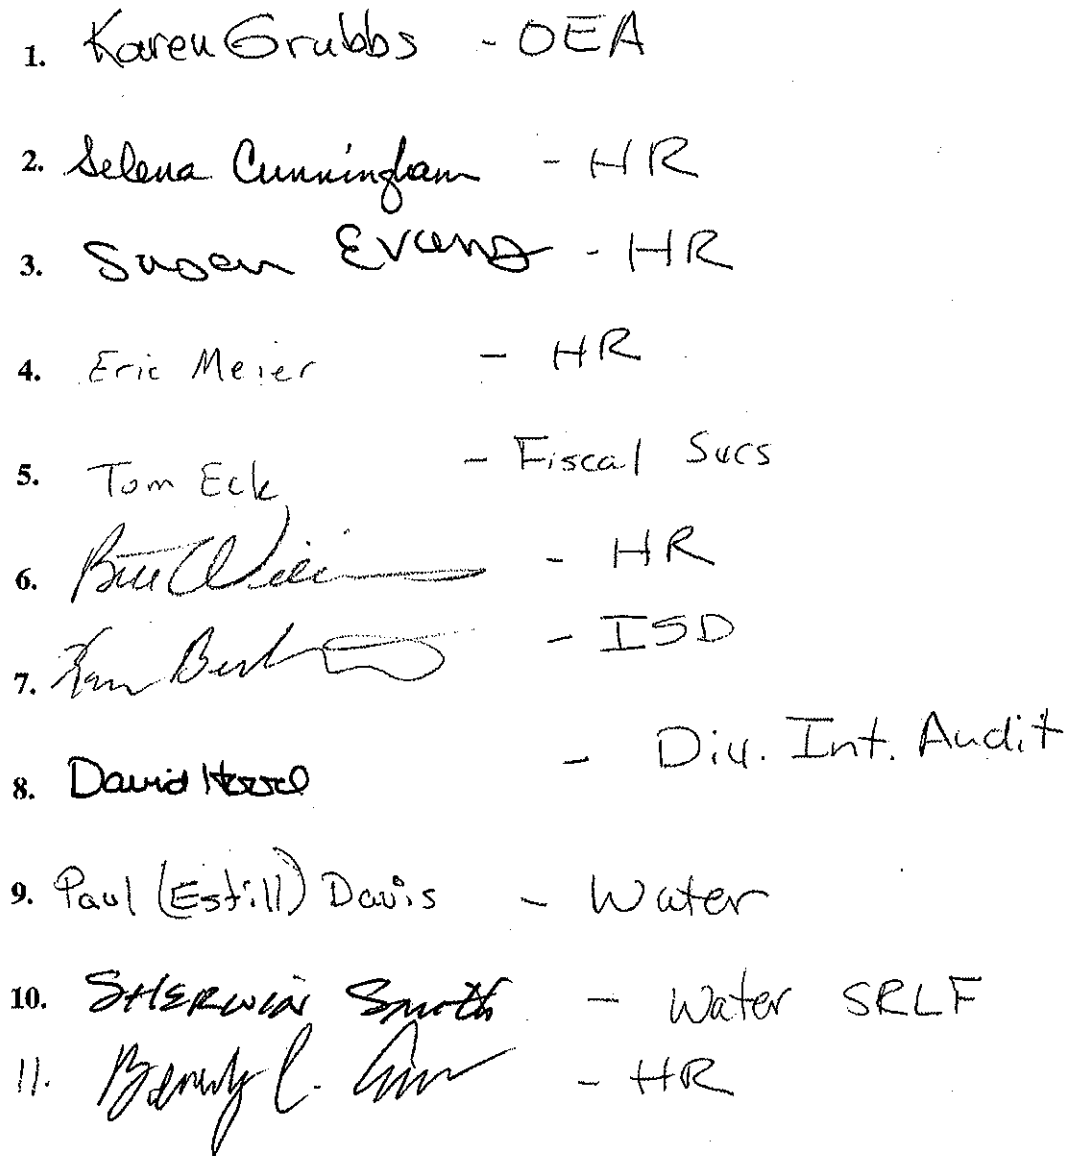 1. Karen Grubbs - OEA
2. Selena Cunningham - HR
3. Susan Evans - HR
4. Eric Meier - HR
5. Tom Eck - Fiscal Svcs
6. Bill - HR
7. - ISD
8. David - Div. Int. Audit
9. Paul (Estill) Davis - Water
10. SHERWIN Smith - Water SRLF
11. C. - HR